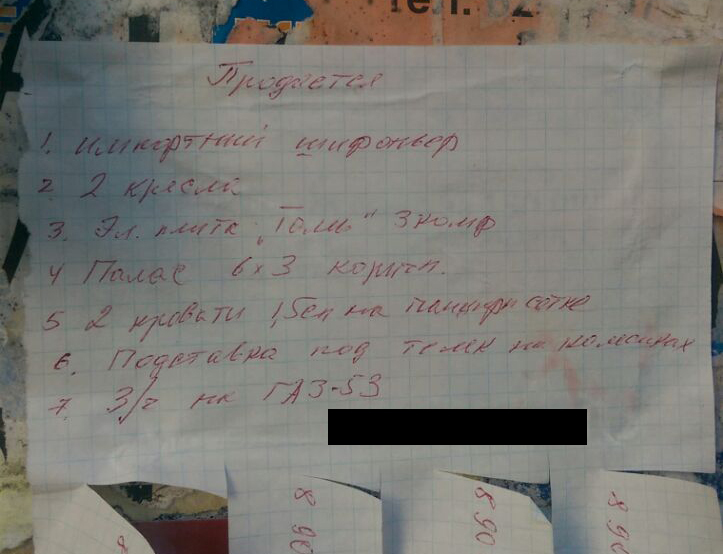 тел. 82
Продается
1. импортний шифоньер
2 2 кресла
3. Эл. плита „Томь" 3 комф
4 Палас 6х3 коричн.
5 2 кровати 1,5сп на панцирн сетке
6. Подставка под телек на колесиках
7. З/ч на ГАЗ-53
8
8 90
8 90
8 90